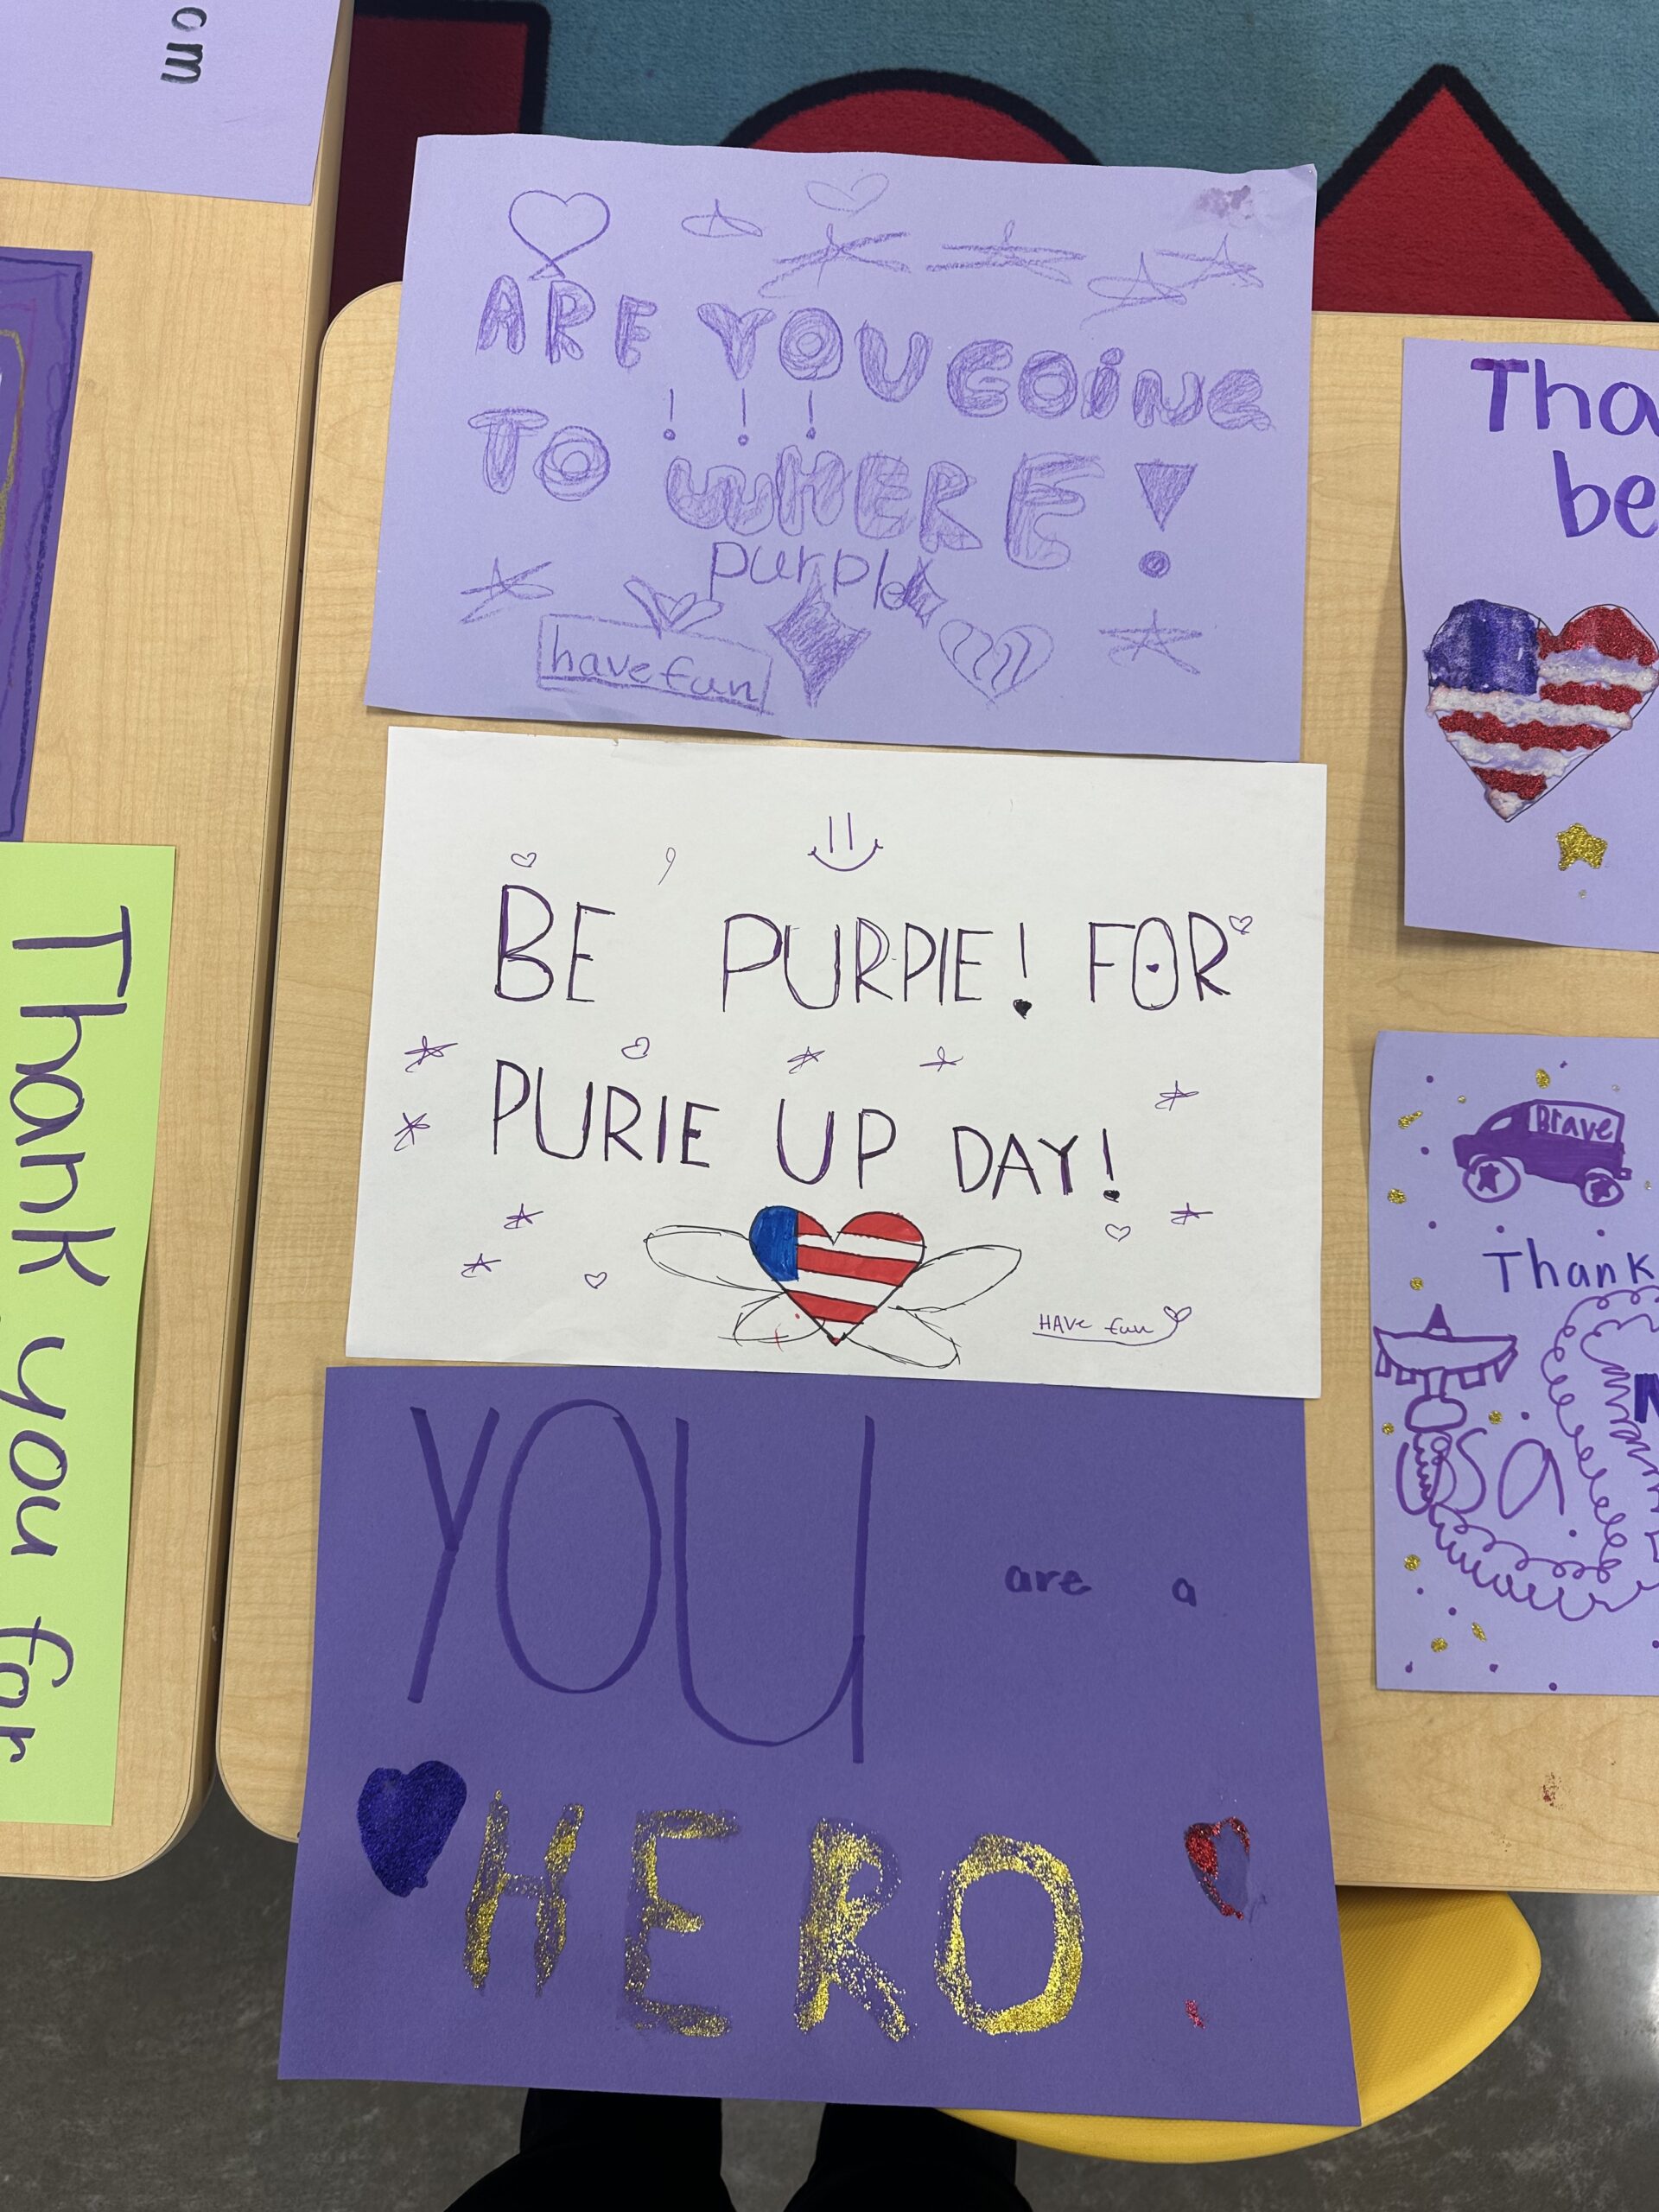 om
ARE YOU GOING
! ! !
TO WHERE!
purple
have fun
BE PURPlE! FOR
PURlE UP DAY!
HAVe fun
YOU are a
HERO
Thank you for
Tha
be
Brave
Thank
USA